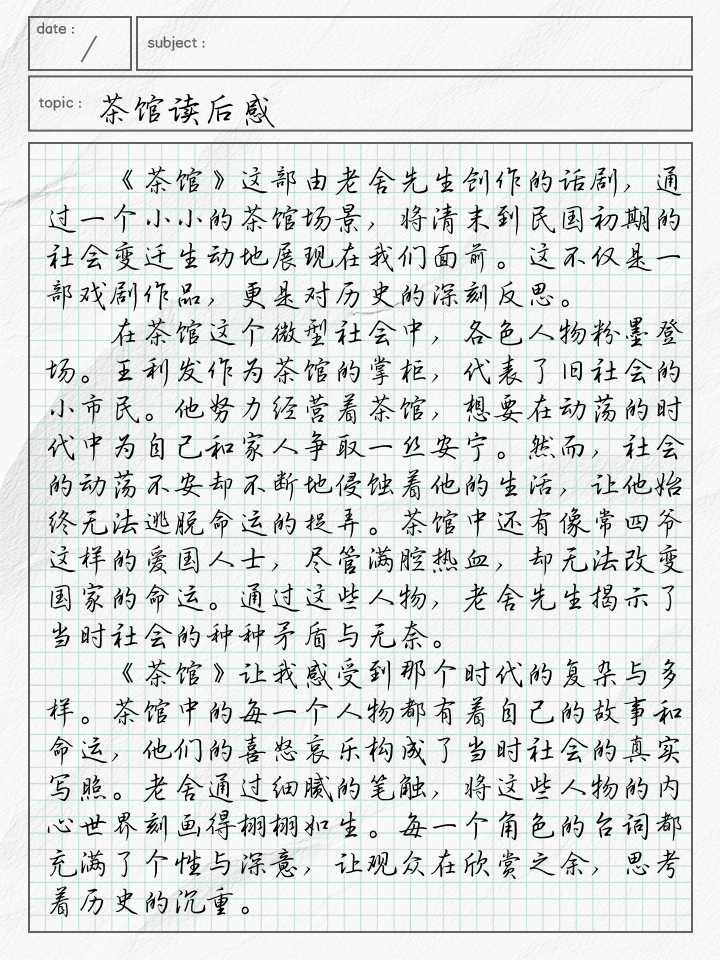 date :
/
subject :
topic : 茶馆读后感
《茶馆》这部由老舍先生创作的话剧，通
过一个小小的茶馆场景，将清末到民国初期的
社会变迁生动地展现在我们面前。这不仅是一
部戏剧作品，更是对历史的深刻反思。
在茶馆这个微型社会中，各色人物粉墨登
场。王利发作为茶馆的掌柜，代表了旧社会的
小市民。他努力经营着茶馆，想要在动荡的时
代中为自己和家人争取一丝安宁。然而，社会
的动荡不安却不断地侵蚀着他的生活，让他始
终无法逃脱命运的捉弄。茶馆中还有像常四爷
这样的爱国人士，尽管满腔热血，却无法改变
国家的命运。通过这些人物，老舍先生揭示了
当时社会的种种矛盾与无奈。
《茶馆》让我感受到那个时代的复杂与多
样。茶馆中的每一个人物都有着自己的故事和
命运，他们的喜怒哀乐构成了当时社会的真实
写照。老舍通过细腻的笔触，将这些人物的内
心世界刻画得栩栩如生。每一个角色的台词都
充满了个性与深意，让观众在欣赏之余，思考
着历史的沉重。